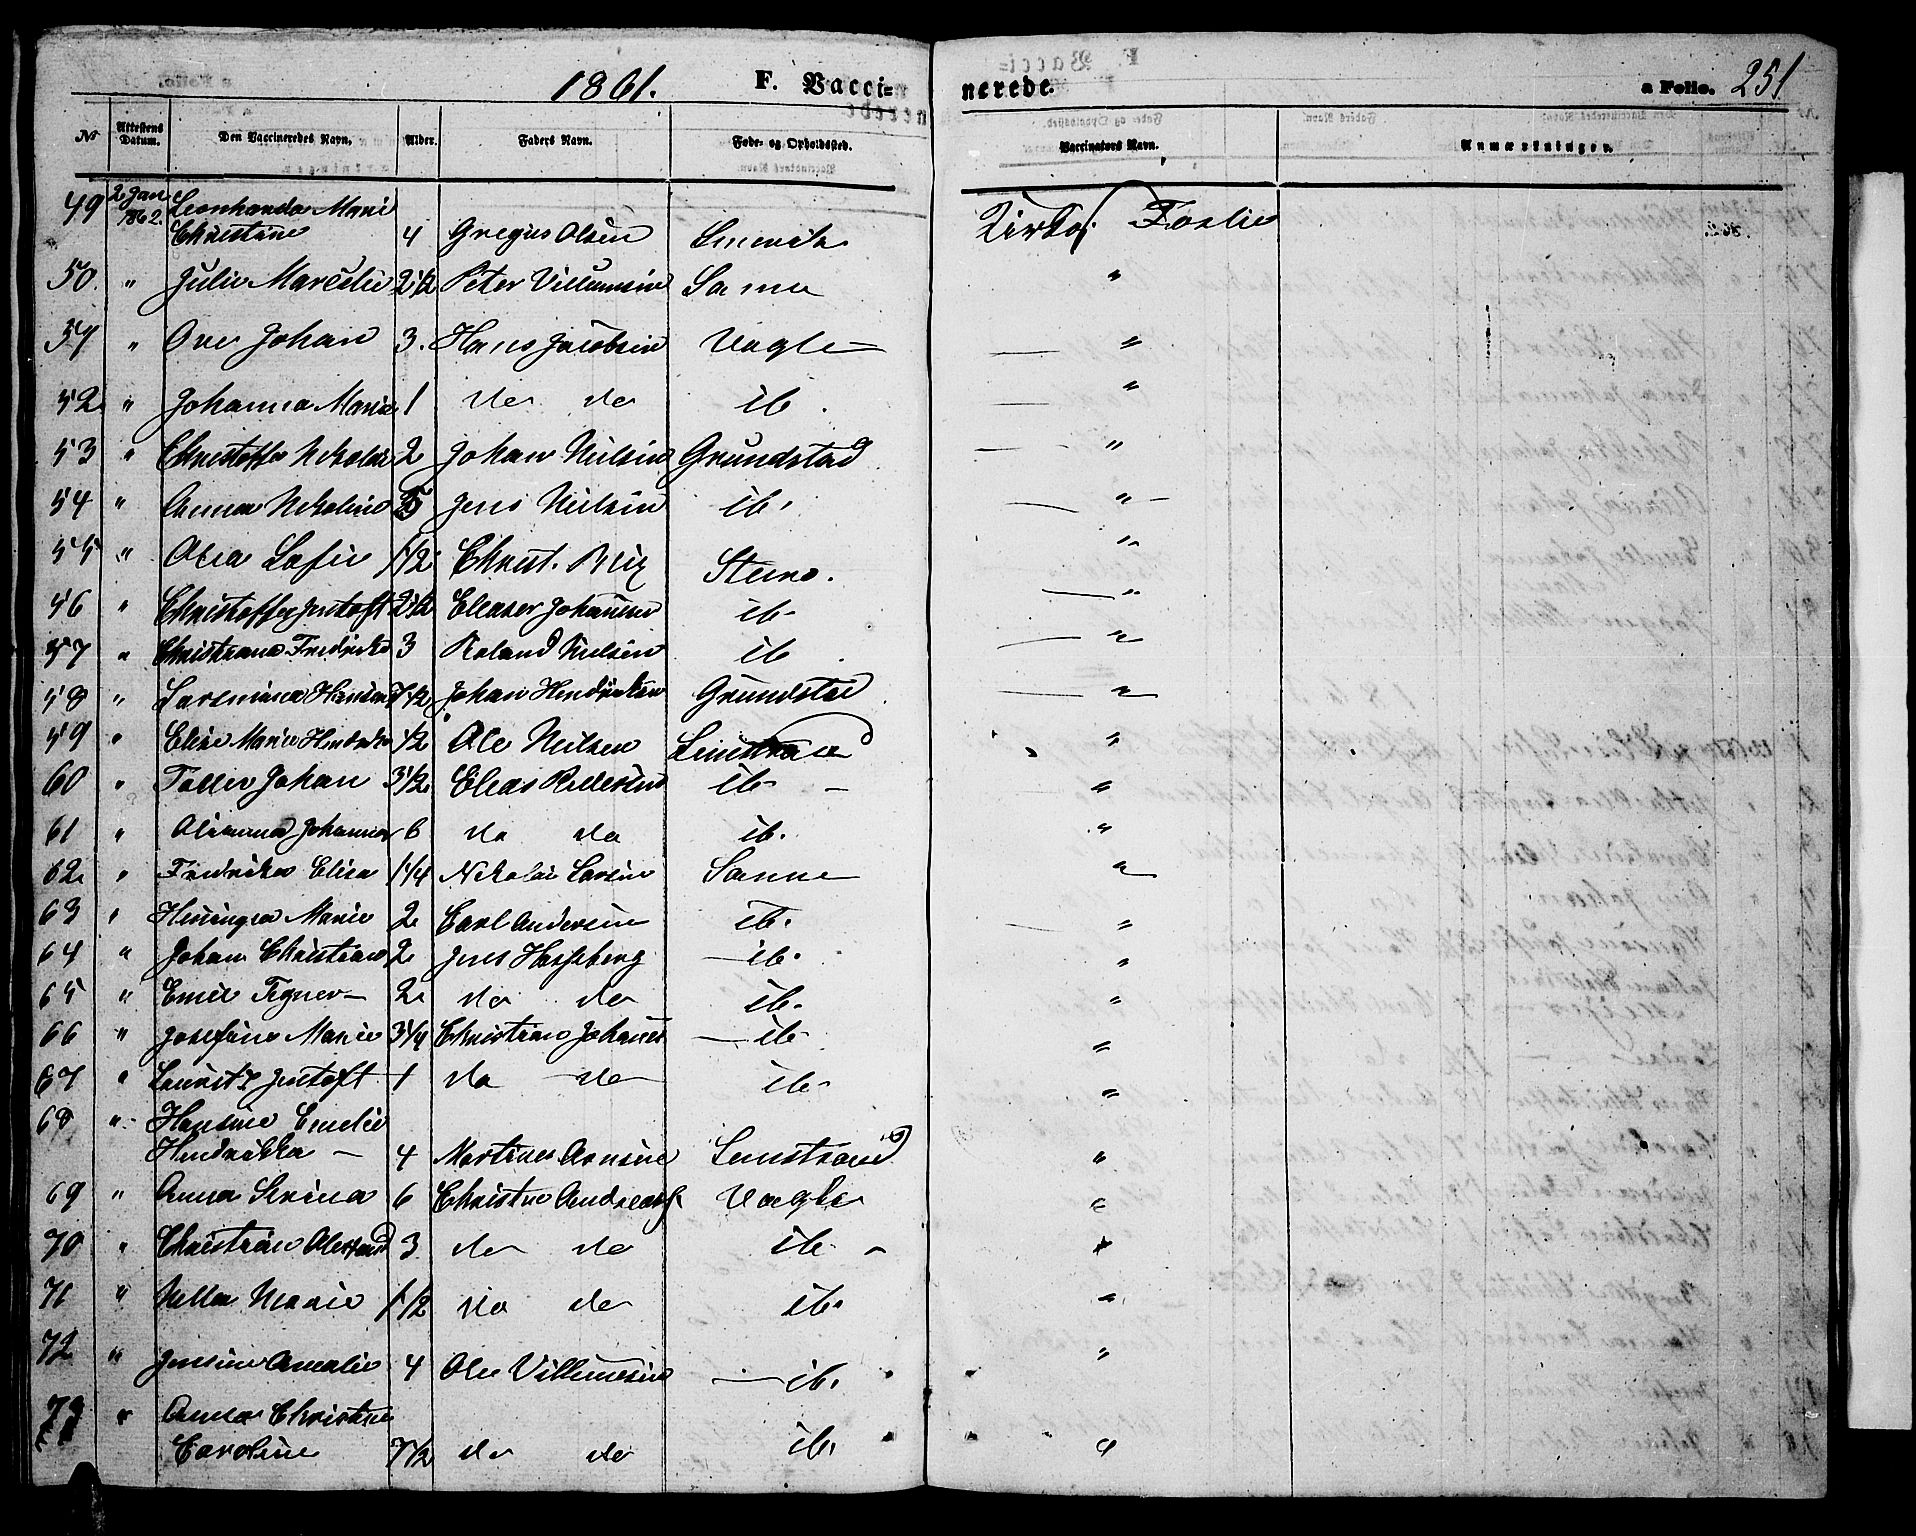 1861. F. Vacci= nerede. a Folio. 251
No Attestens Datum. Den Vaccineredes Navn. Alder. Faders Navn. Føde- og Opholdssted. Vaccinators Navn. Anmærkninger.
49 2 Jan 1862. Leonharda Marie
Christine 4 Gregus Olsen Foslie
50. " Julie Marcelie 2 1/2 Peter Villumsen Sanne "
51 " Ove Johan 3. Hans Jacobsen Vagle — "
52 " Johanna Marie 1 do do ib. — "
53 " Christoffer Nikolai 2 Johan Nilsen Grundstad — "
54 " Anna Nikoline 5 Jens Nilsen ib. — "
55 " Olea Sofie 1 1/2 Christ. Steiro. "
56 " Christoffer Gustaft 2 1/2 Eleaser Johansen ib — "
57 " Christiana Fredrikke 3 Roland Nilsen ib — "
58 " Hansen 1/2 Johan Hendriksen Grundstad — "
59 " Elise Marie Hendrikke 1/2 Ole Nilsen Leinstrand "
60 " Johan 3 1/2 Elias Pedersen ib — "
61 " Johanna 6 do do ib. "
62 " Fredrikke Elisa 1 1/4 Nikolai Larsen Sanne "
63 " Marie 2 Carl Andersen ib. — "
64 " Johan Christian 2 Jens Hassberg — ib. "
65 " Emil Tegner — 2 do do ib. "
66 " Josefine Marie 3 1/4 Christian Johanes — ib "
67 " Lauritz Gustaft 1 do do ib "
68 " Hansine Emelie
Hendrikka — 4 Martines Arnsen Leinstrand "
69 " Anna Serina 6 Christen Andreas Vagle "
70 " Christian 3 do do ib. — "
71 " Nella Marie 1 1/2 do do ib. "
72 " Jensine Amalie 4 Ole Villumsen — ib. "
73 " Anna Christine
Caroline 7 1/2 do do ib. "